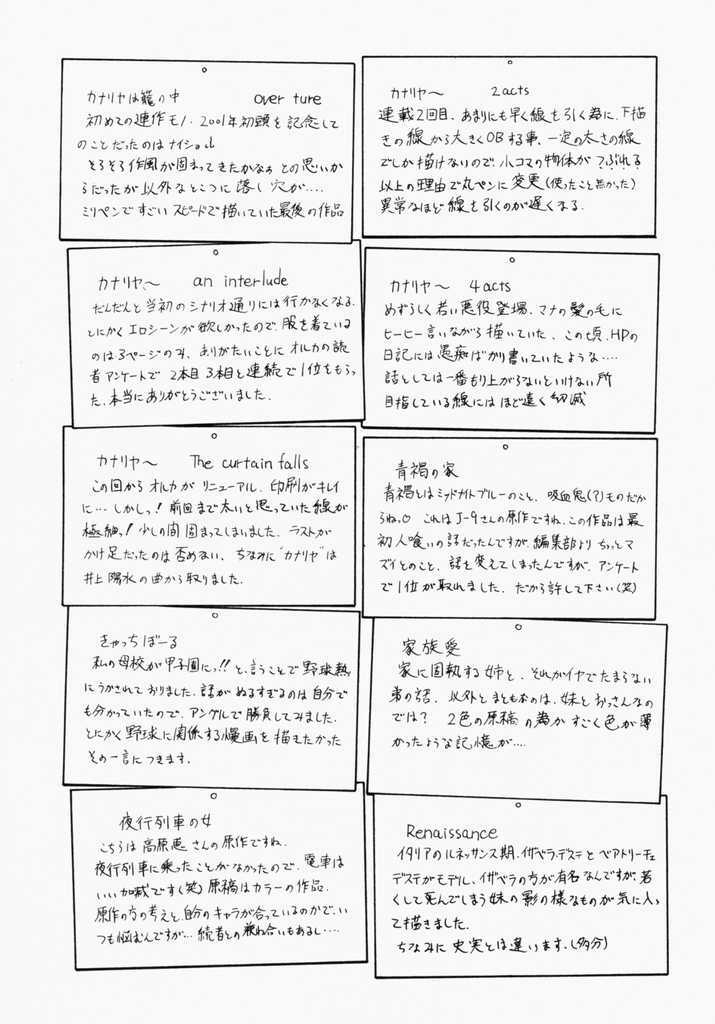 カナリヤは籠の中 over ture
初めての連作モノ・2001年初頭を記念して
のことだったのはナイショ。
そろそろ作風が固まってきたかなぁ との思いか
らだったが以外なところに落し穴が‥‥
ミリペンですごいスピードで描いていた最後の作品
カナリヤ〜 2acts
連載2回目、あまりにも早く線を引く為に、下描
きの線から大きくOBする事、一定の太さの線
でしか描けないので、小コマの物体がつぶれる
以上の理由で丸ペンに変更(使ったこと無かった)
異常なほど線を引くのが遅くなる.
カナリヤ〜 an interlude
だんだんと当初のシナリオ通りには行かなくなる.
とにかくエロシーンが欲しかったので、服を着ている
のは3ページのみ、ありがたいことにオルカの読
者アンケートで2本目3本目と連続で1位をもらっ
た、本当にありがとうございました.
カナリヤ〜 4acts
めずらしく若い悪役登場、マナの髪の毛に
ヒーヒー言いながら描いていた、この頃、HPの
日記には愚痴ばかり書いていたような‥‥
話としては一番もり上がらないといけない所
目指している線にはほど遠く幻滅
カナリヤ〜 The curtain falls
この回からオルカがリニューアル、印刷がキレイ
に…しかしっ!前回まで太いと思っていた線が
極細っ!少しの間固まってしまいました. ラストが
かけ足だったのは否めない、ちなみに"カナリヤ"は
井上陽水の曲から取りました.
青褐の家
青褐とはミッドナイトブルーのこと、吸血鬼(?)ものだか
らね。 これはJ-9さんの原作ですね、この作品は最
初人喰いの話だったんですが、編集部よりちょっとマ
ズイとのこと、話を変えてしまったんですが、アンケート
で1位が取れました、だから許して下さい(笑)
きゃっちぼーる
私の母校が甲子園にっ!!と、言うことで野球熱
にうかされておりました、話がぬるすぎるのは自分で
も分かっていたので、アングルで勝負してみました.
とにかく野球に関係する漫画を描きたかった
その一言につきます.
家族愛
家に固執する姉と、それがイヤでたまらない
弟の話、以外とまともなのは、妹とおっさんなの
では? 2色の原稿の為かすごく色が薄
かったような記憶が‥‥
夜行列車の女
こちらは高原恵さんの原作ですね.
夜行列車に乗ったことがなかったので、電車は
いい加減です(笑)原稿はカラーの作品.
原作の方の考えと、自分のキャラが合っているのかで、い
つも悩むんですが… 続者との兼ね合いもあるし‥‥
Renaissance
イタリアのルネッサンス期、イザベラ・デステとベアトリーチェ
デステがモデル、イザベラの方が有名なんですが、若
くして死んでしまう妹の影の様なものが気に入っ
て描きました.
ちなみに史実とは違います.(多分)